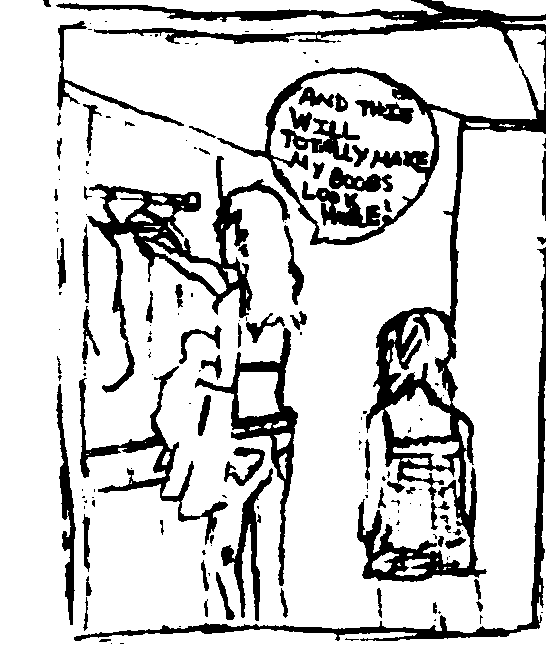 AND THIS
WILL
TOTALLY MAKE
MY BOOBS
LOOK
HUGE!